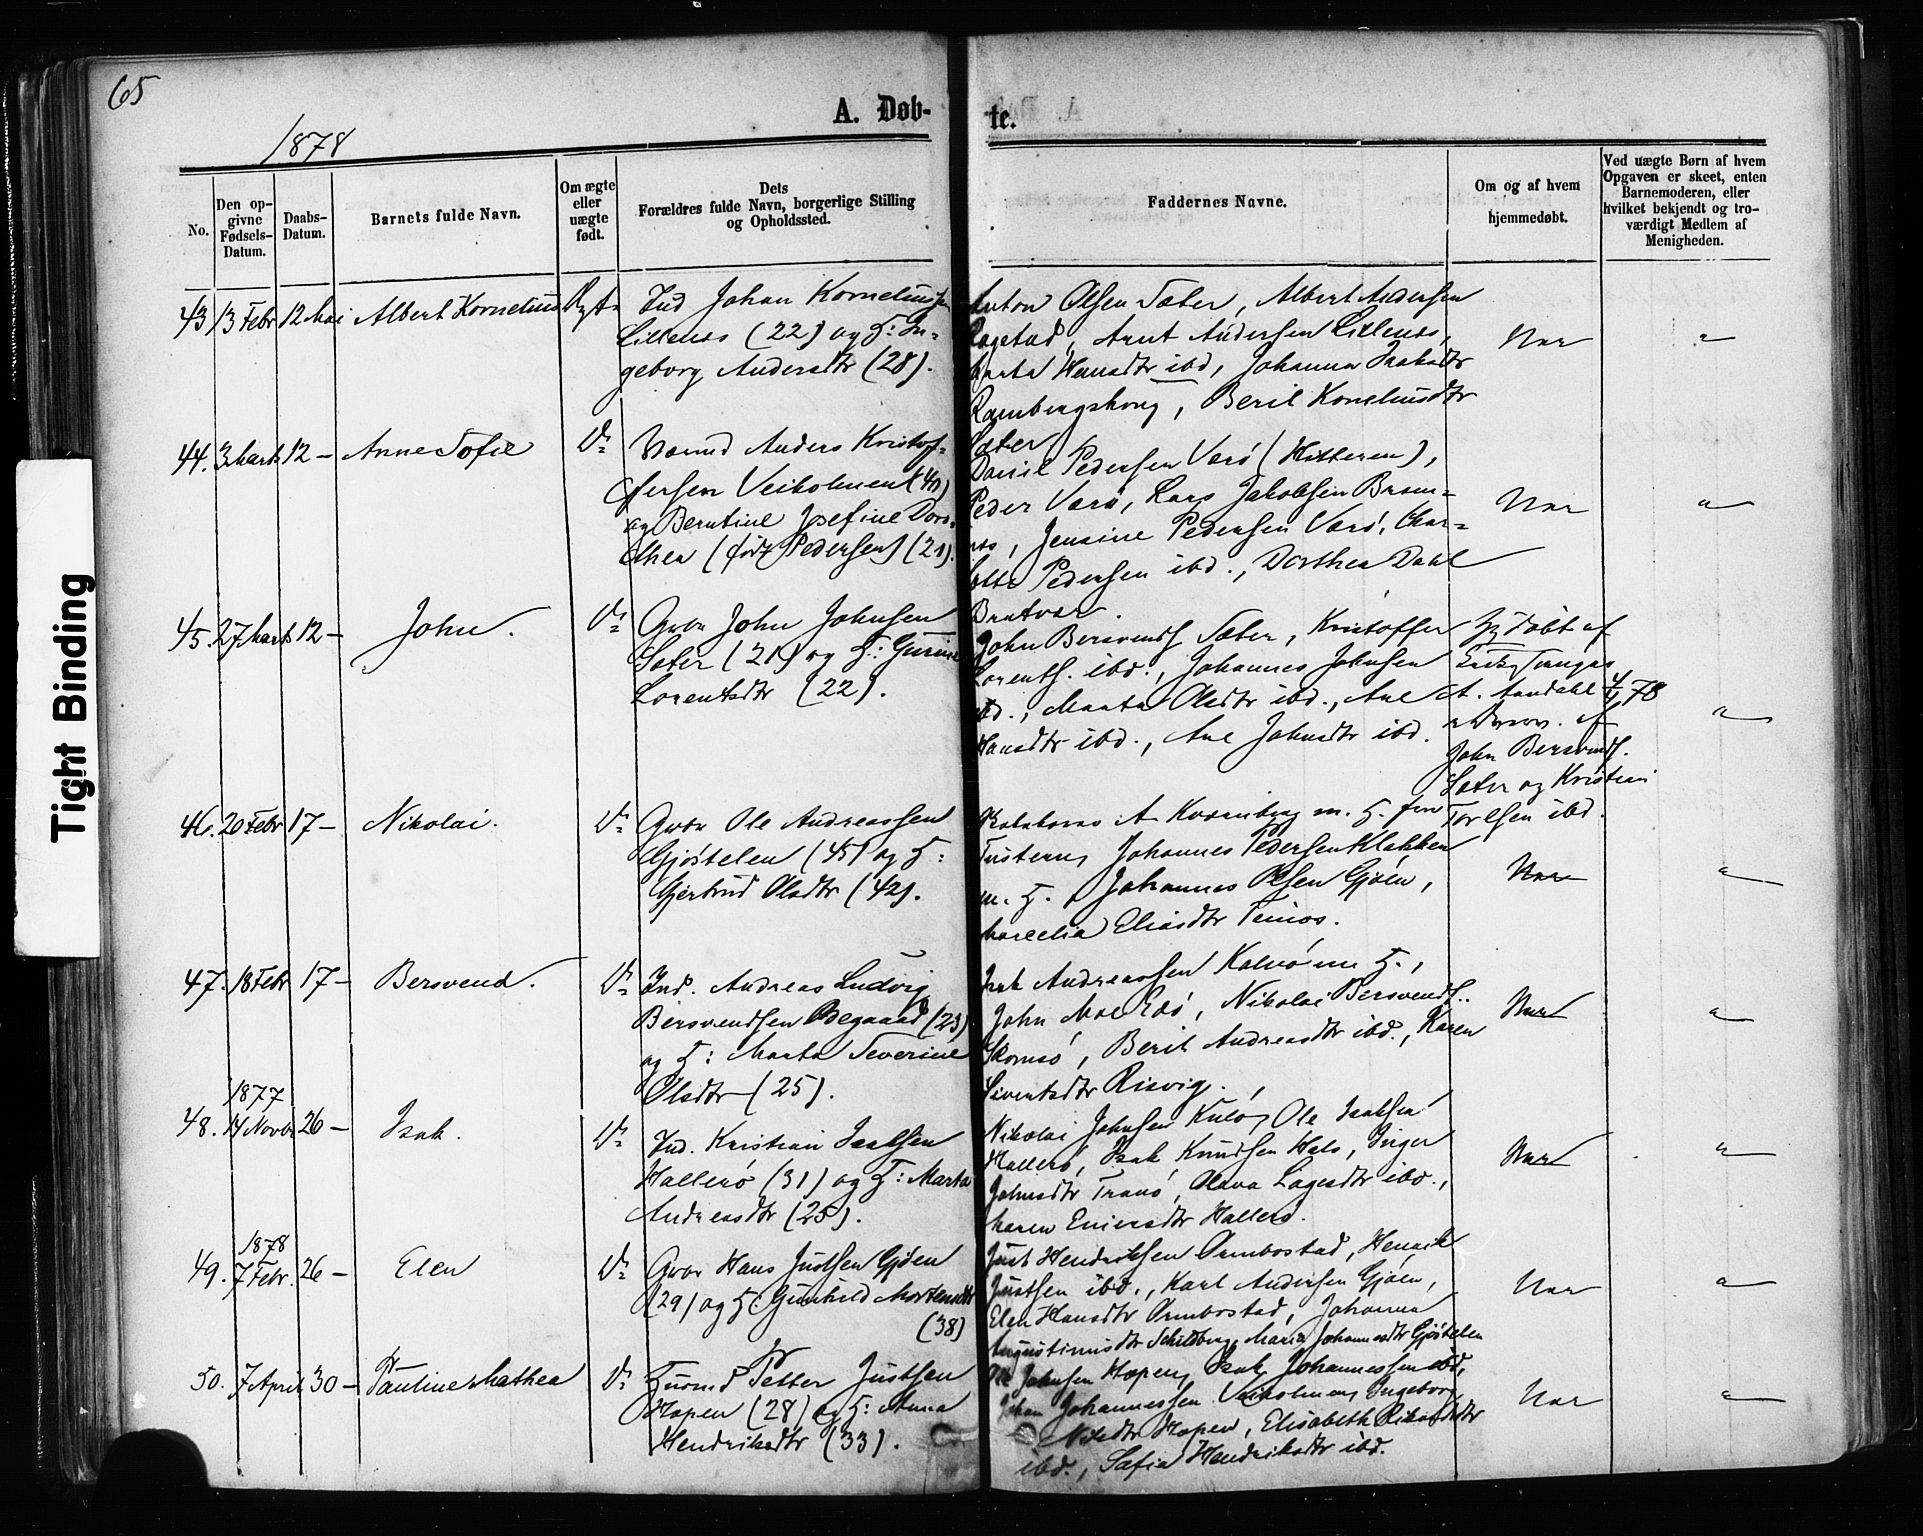 65
A. Døb-
te.
1878
No.
Den op-
givne
Fødsels-
Datum.
Daabs-
Datum.
Barnets fulde Navn.
Om ægte
eller
uægte
født.
Dets
Forældres fulde Navn, borgerlige Stilling
og Opholdssted.
Faddernes Navne.
Om og af hvem
hjemmedøbt.
Ved uægte Børn af hvem
Opgaven er skeet, enten
Barnemoderen, eller
hvilket bekjendt og tro-
værdigt Medlem af
Menigheden.
Tight Binding
43 13 Febr 12 Mai Albert Kornelius Ægte
Ind Johan Korneliussen
Lillenes (22) og H: In-
geborg Andersdtr (28).
Anton Olsen Sæter, Albert Andersen
Arnt Andersen Lillenes,
Marta Hansdtr ibd, Johanna Isaksdtr
Beril Korneliusdtr
Sæter
Nei "
44. 3 Marts 12 – Anne Sofie Do
Anders Kristof-
fersen Veiholmen (40)
og Berntine Josefine Doro-
thea (født Pedersen) (21).
Daniel Pedersen Værø (Hitteren),
Peder Værø, Lars Jakobsen Brem-
nes, Jensine Pedersen Værø, Char-
lotte Pedersen ibd., Dorthea Dahl
Bratvær.
Nei "
45. 27 Marts 12 – John. Do
Gbr John Johnsen
Sæter (21) og H: Gurine
Lorentsdtr (22).
John Bersvends. Sæter, Kristoffer
Lorents. ibd., Johannes Johnsen
ibd., Marta Olsdtr ibd., Ane
Hansdtr ibd., Ane Johnsdtr ibd.
døbt af
A. Aandahl 4/4 78
af
John Bersvends.
Sæter og Kristian
Torlsen ibd.
"
46. 20 Febr 17 – Nikolai. Do
Gbr Ole Andreassen
Gjøstelen (45) og H:
Gjertrud Olsdtr (42).
A. Kvernberg m. H. fra
Tustern, Johannes Pedersen Klakken
m. H., Johannes Olsen Gjøen,
Eliasdtr
Nei "
47. 18 Febr 17 – Bersvend. Do
Ind. Andreas Ludvig
Bersvendsen (23)
og H: Marta Severine
Olsdtr (25).
Isak Andreassen Kalvø m. H.,
John Moe Edø, Nikolai Bersvends.
Skomsø, Berit Andreasdtr ibd., Karen
Sivertsdtr Risvig.
Nei "
1877
48. 14 Novbr 26 – Isak. Do
Ind. Kristian Isaksen
Hallerø (31) og H: Marta
Andreasdtr (25).
Nikolai Johnsen Kulø, Ole Isaksen
Hallerø, Isak Knudsen Hals, Inger
Johnsdtr Tranø, Olava Lagesdtr ibd.,
Maren Hallerø.
Nei "
1878
49. 7 Febr. 26 – Elen Do
Gbr Hans Justsen Gjøen
(29) og H: Gunhild Mortensdtr
(38)
Just Hendriksen Ormbostad, Henrik
Justsen ibd., Karl Andersen Gjøen,
Elen Hansdtr Ormbostad, Johanna
Augustinusdtr Schilsberg, Maria Johannesdtr Gjøstelen
Nei "
50. 7 April 30 – Pauline Mathea Do
Husmd Petter Justsen
Hopen (28) og H: Anna
Hendriksdtr (33).
Ole Johnsen Hopen, Isak Johannessen ibd,
Johan Johannessen Veiholmen, Ingeborg
Nilsdtr Hopen, Elisabeth Rikardsdtr
ibd., Sofia Hendriksdtr ibd.
Nei "